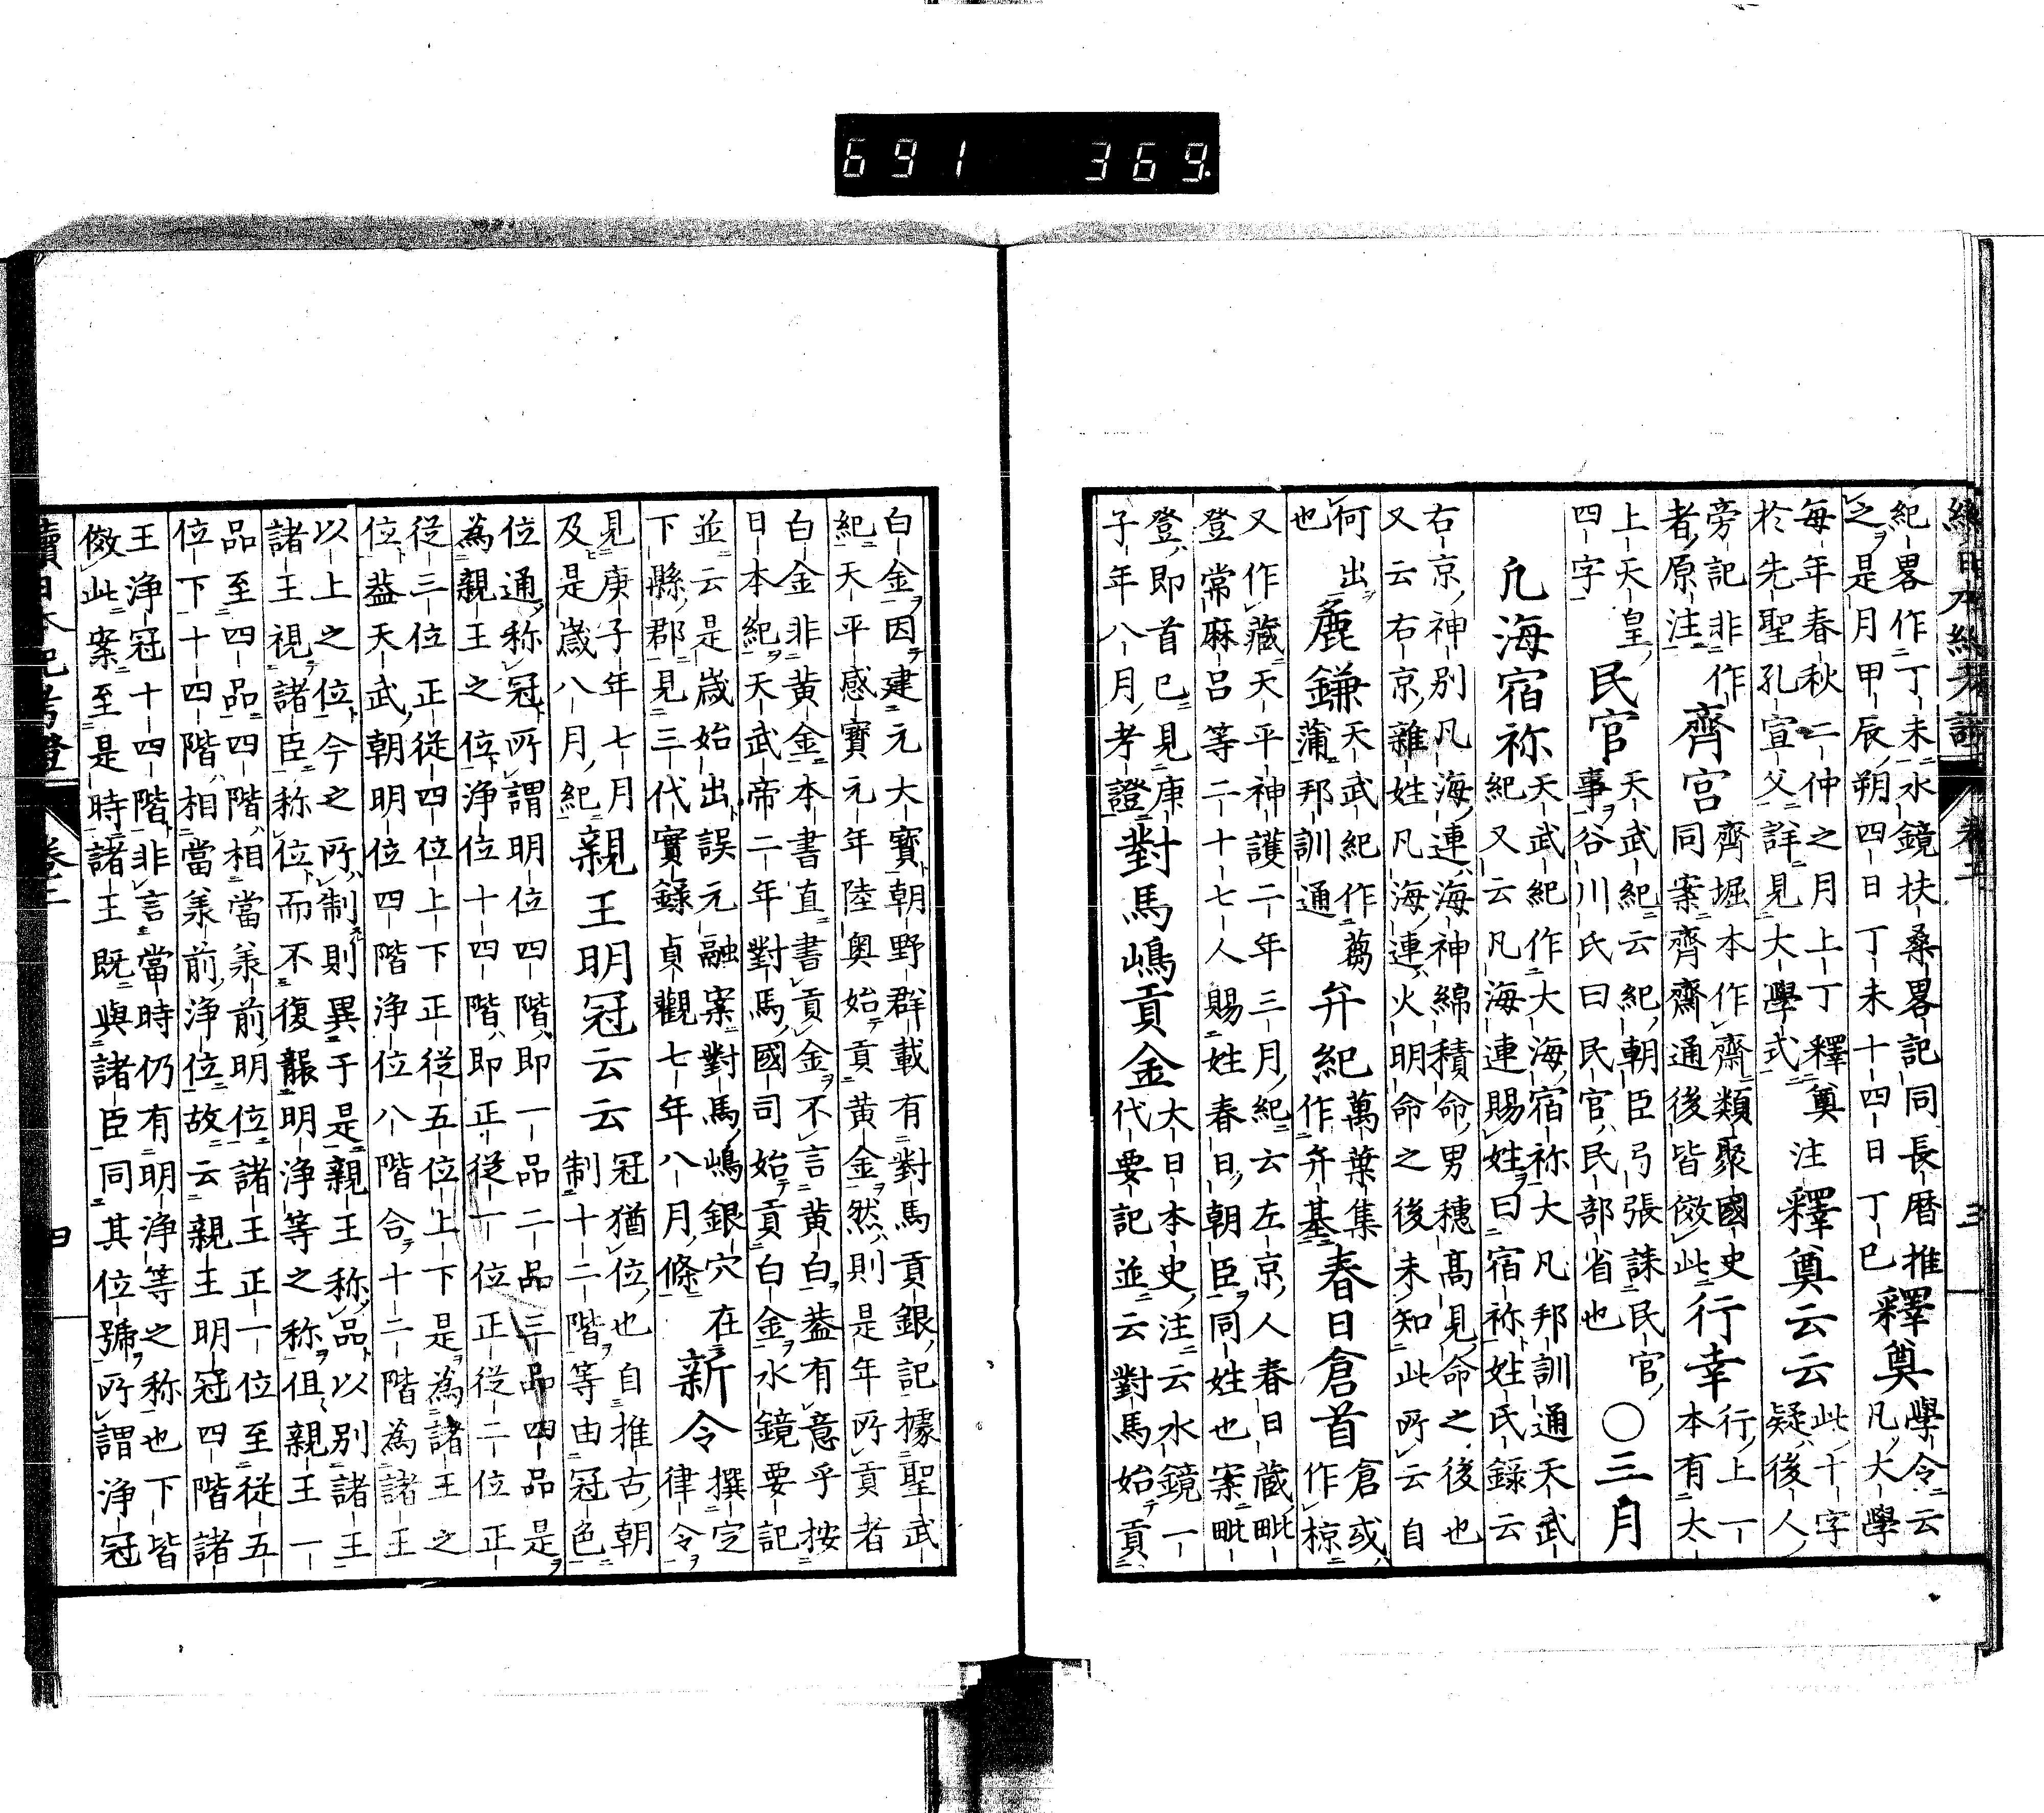 紀畧作丁未水鏡扶桑畧記同長暦推
之是月甲辰朔四日丁未十四日丁巳
釋奠
學令云
凡大學
每年春秋二仲之月上丁釋奠
於先聖孔宣父詳見大學式
注釋奠云云
此十字
疑後人
旁記非作
者原注
齊宮
齊堀本作齋類聚國史
同案齊齋通後皆傚此
行幸
行上一
本有太
上天皇
四字
民官
天武紀云紀朝臣弓張誄民官
事谷川氏曰民官民部省也
〇三月
凡海宿祢
天武紀作大海宿祢大凡邦訓通天武
紀又云凡海連賜姓曰宿祢姓氏錄云
右京神別凡海連海神綿積命男穗高見命之後也
又云右京雜姓凡海連火明命之後未知此所云自
何出
也
麁鎌
天武紀作蒭
蒲邦訓通
弁紀
萬葉集
作弁基
春日倉首
倉或
作椋
又作藏天平神護二年三月紀云左京人春日蔵毗
登常麻呂等二十七人賜姓春日朝臣同姓也案毗
登即首已見庚
子年八月考證
對馬嶋貢金
大日本史注云水鏡一
代要記並云對馬始貢
白金因建元大寶朝野群載有對馬貢銀記據聖武
紀天平感寶元年陸奥始貢黄金然則是年所貢者
白金非黄金本書直書貢金不言黄白葢有意乎按
日本紀天武帝二年對馬國司始貢白金水鏡要記
並云是歳始出誤元融案對馬嶋銀穴在
下縣郡見三代實錄貞觀七年八月條
新令
撰定
律令
見庚子年七月
及是歳八月紀
親王明冠云云
冠猶位也自推古朝
制十二階等由冠色
位通称冠所謂明位四階即一品二品三品四品是
為親王之位浄位十四階即正從一位正從二位正
從三位正從四位上下正從五位上下是為諸王之
位葢天武朝明位四階浄位八階合十二階為諸王
以上之位今之所制則異于是親王称品以别諸王
諸王視諸臣称位而不復襲明浄等之称但親王一
品至四品四階相當羕前明位諸王正一位至從五
位下十四階相當羕前浄位故云親王明冠四階諸
王浄冠十四階非言當時仍有明浄等之称也下皆
傚此案至是時諸王既與諸臣同其位號所謂浄冠
691 369